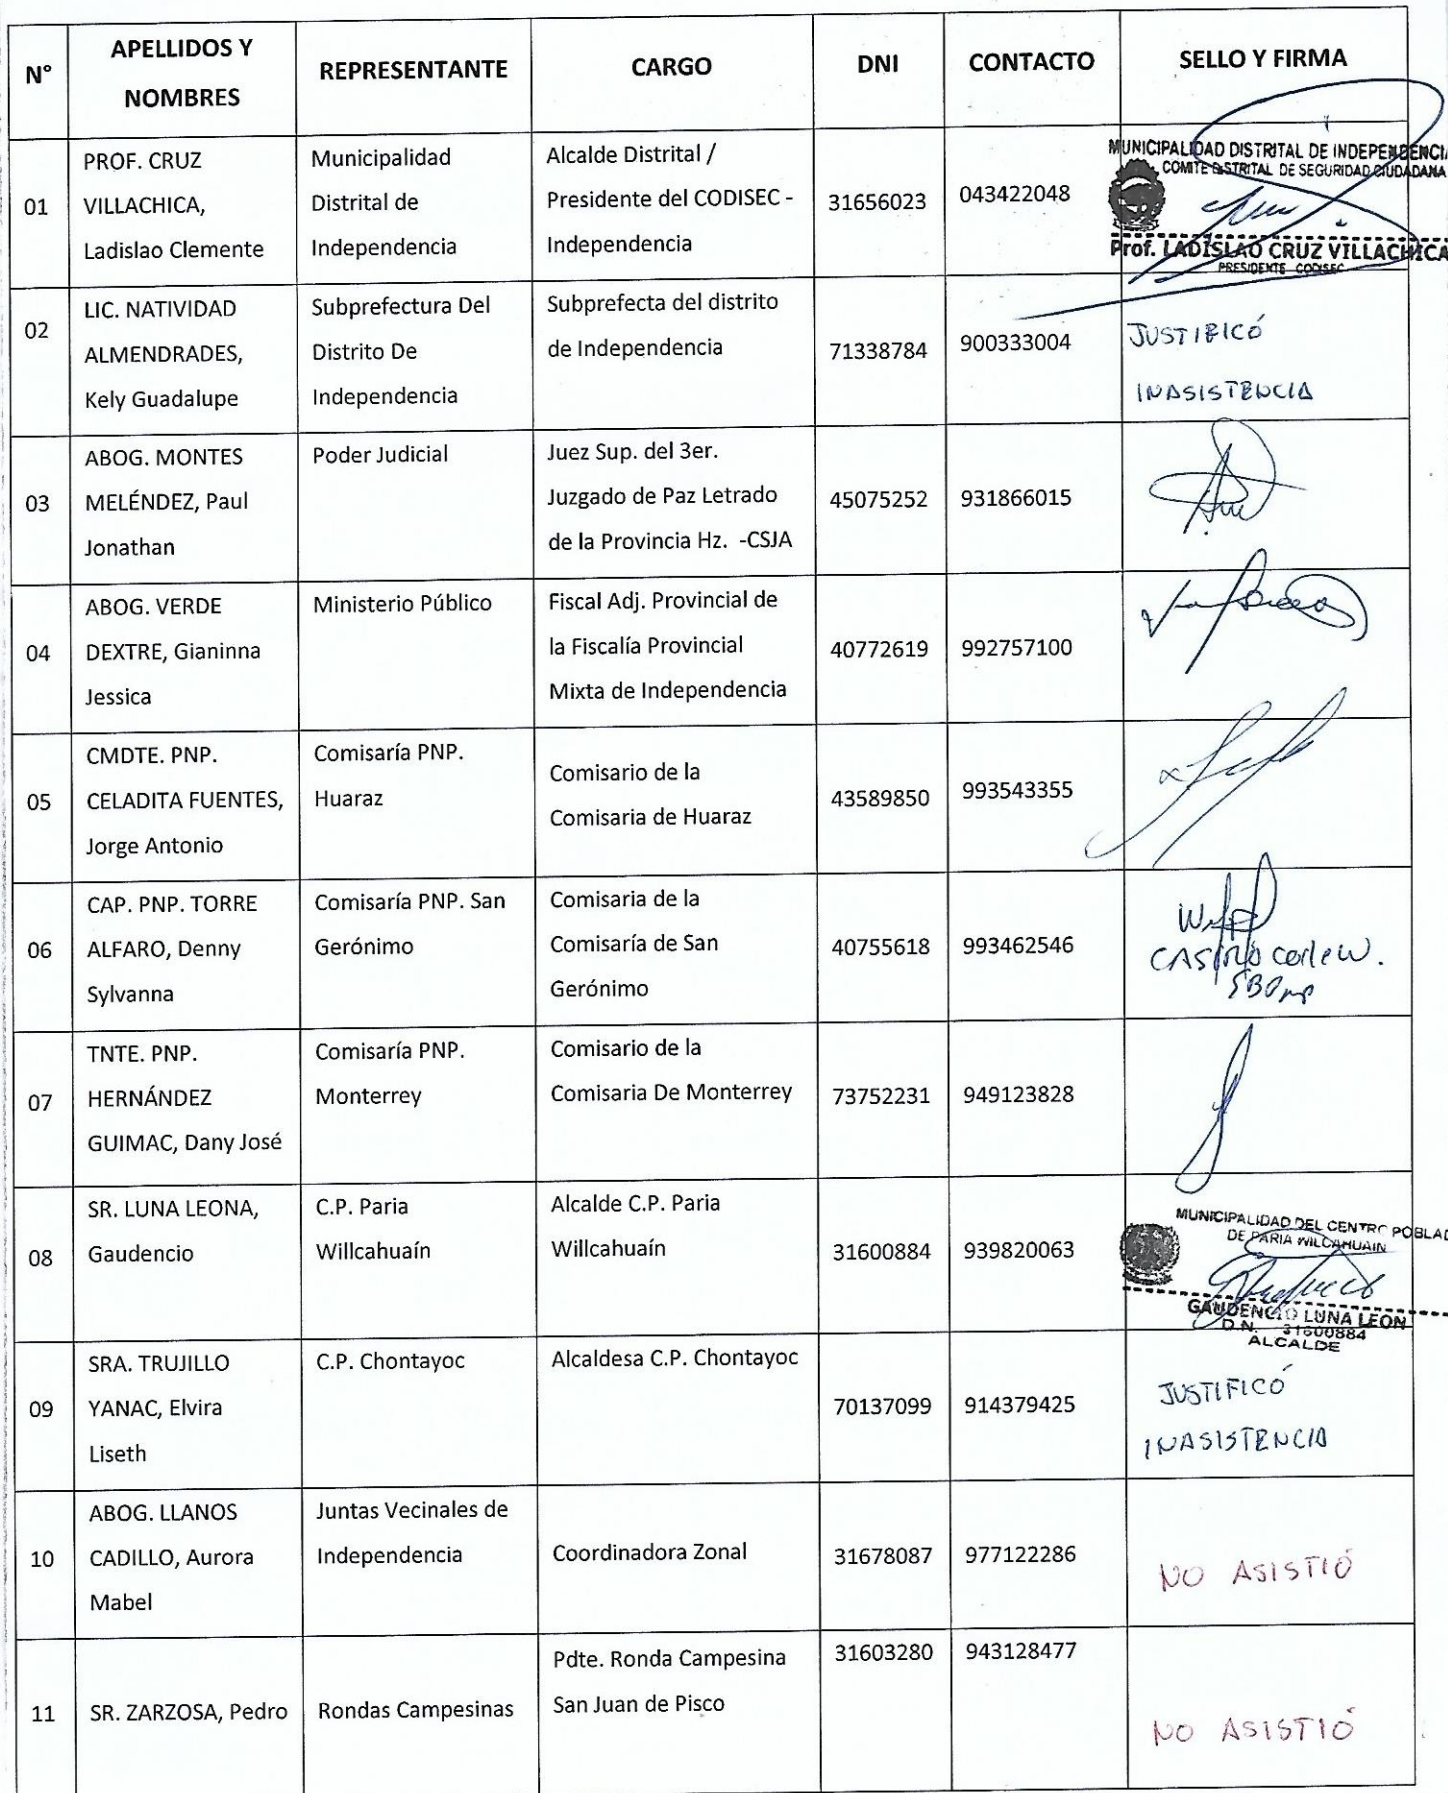 N° APELLIDOS Y NOMBRES REPRESENTANTE CARGO DNI CONTACTO SELLO Y FIRMA
01
PROF. CRUZ
VILLACHICA,
Ladislao Clemente
Municipalidad
Distrital de
Independencia
Alcalde Distrital /
Presidente del CODISEC -
Independencia
31656023
043422048
MUNICIPALIDAD DISTRITAL DE INDEPENDENCIA
COMITE DISTRITAL DE SEGURIDAD CIUDADANA
Prof. LADISLAO CRUZ VILLACHICA
PRESIDENTE CODISEC
02
LIC. NATIVIDAD
ALMENDRADES,
Kely Guadalupe
Subprefectura Del
Distrito De
Independencia
Subprefecta del distrito
de Independencia
71338784
900333004
JUSTIFICÓ
INASISTENCIA
03
ABOG. MONTES
MELÉNDEZ, Paul
Jonathan
Poder Judicial
Juez Sup. del 3er.
Juzgado de Paz Letrado
de la Provincia Hz. -CSJA
45075252
931866015
04
ABOG. VERDE
DEXTRE, Gianinna
Jessica
Ministerio Público
Fiscal Adj. Provincial de
la Fiscalía Provincial
Mixta de Independencia
40772619
992757100
05
CMDTE. PNP.
CELADITA FUENTES,
Jorge Antonio
Comisaría PNP.
Huaraz
Comisario de la
Comisaria de Huaraz
43589850
993543355
06
CAP. PNP. TORRE
ALFARO, Denny
Sylvanna
Comisaría PNP. San
Gerónimo
Comisaria de la
Comisaría de San
Gerónimo
40755618
993462546
CASTRO W.
07
TNTE. PNP.
HERNÁNDEZ
GUIMAC, Dany José
Comisaría PNP.
Monterrey
Comisario de la
Comisaria De Monterrey
73752231
949123828
08
SR. LUNA LEONA,
Gaudencio
C.P. Paria
Willcahuaín
Alcalde C.P. Paria
Willcahuaín
31600884
939820063
MUNICIPALIDAD DEL CENTRO POBLAD
DE PARIA WILCAHUAIN
GAUDENCIO LUNA LEON
D.N. 31600884
ALCALDE
09
SRA. TRUJILLO
YANAC, Elvira
Liseth
C.P. Chontayoc
Alcaldesa C.P. Chontayoc
70137099
914379425
JUSTIFICÓ
INASISTENCIA
10
ABOG. LLANOS
CADILLO, Aurora
Mabel
Juntas Vecinales de
Independencia
Coordinadora Zonal
31678087
977122286
NO ASISTIÓ
11
SR. ZARZOSA, Pedro
Rondas Campesinas
Pdte. Ronda Campesina
San Juan de Pisco
31603280
943128477
NO ASISTIÓ